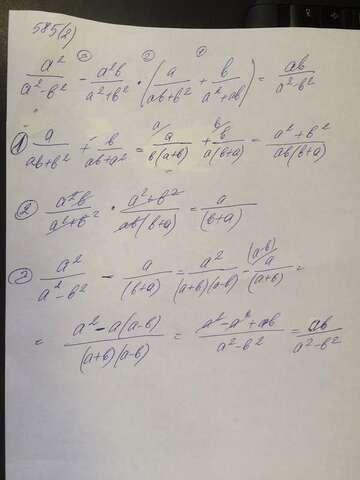 585(2)
③ ② ①
a²/(a²-b²) - a²b/(a²+b²) · (a/(ab+b²) + b/(a²+ab)) = ab/(a²-b²)
① a/(ab+b²) + b/(ab+a²) = a/ a/(b(a+b)) + b/ b/(a(b+a)) = (a²+b²)/(ab(b+a))
② a²b/(a²+b²) · (a²+b²)/(ab(b+a)) = a/(b+a)
③ a²/(a²-b²) - a/(b+a) = a²/((a+b)(a-b)) - (a-b)/ a/(a+b) =
= (a²-a(a-b))/((a+b)(a-b)) = (a²-a²+ab)/(a²-b²) = ab/(a²-b²)